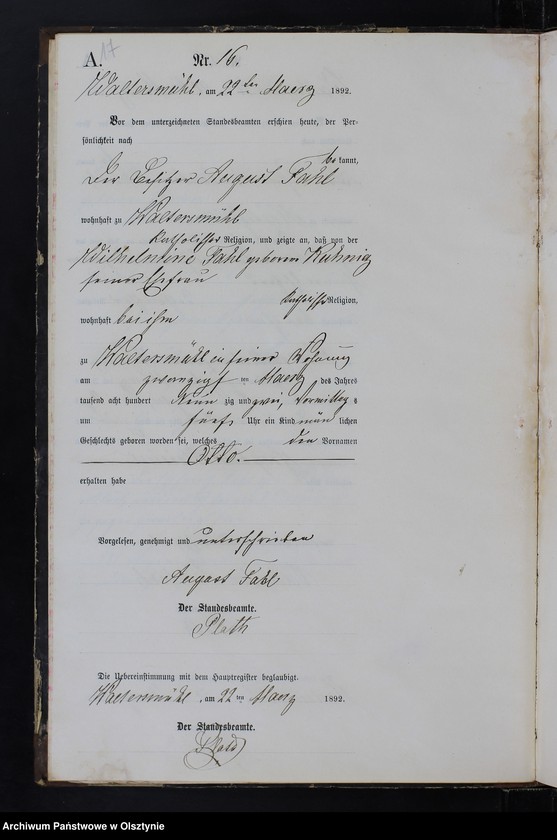 A. 17
Nr. 16.
Waltersmühl, am 22ten Maerz 1892.
Vor dem unterzeichneten Standesbeamten erschien heute, der Per-
sönlichkeit nach
be kannt,
der Besitzer August Fahl
wohnhaft zu Waltersmühl
katholischer Religion, und zeigte an, daß von der
Wilhelmine Fahl geborene Kuhnig
seiner Ehefrau
katholischer Religion,
wohnhaft bei ihm
zu Waltersmühl in seiner Wohnung
am zwanzigsten Maerz des Jahres
tausend acht hundert neun zig und zwei, Vormittags
um fünf Uhr ein Kind männ lichen
Geschlechts geboren worden sei, welches den Vornamen
Otto.
erhalten habe
Vorgelesen, genehmigt und unterschrieben
August Fahl
Der Standesbeamte.
Plath
Die Uebereinstimmung mit dem Hauptregister beglaubigt.
Waltersmühl, am 22ten Maerz 1892.
Der Standesbeamte.
Archiwum Państwowe w Olsztynie